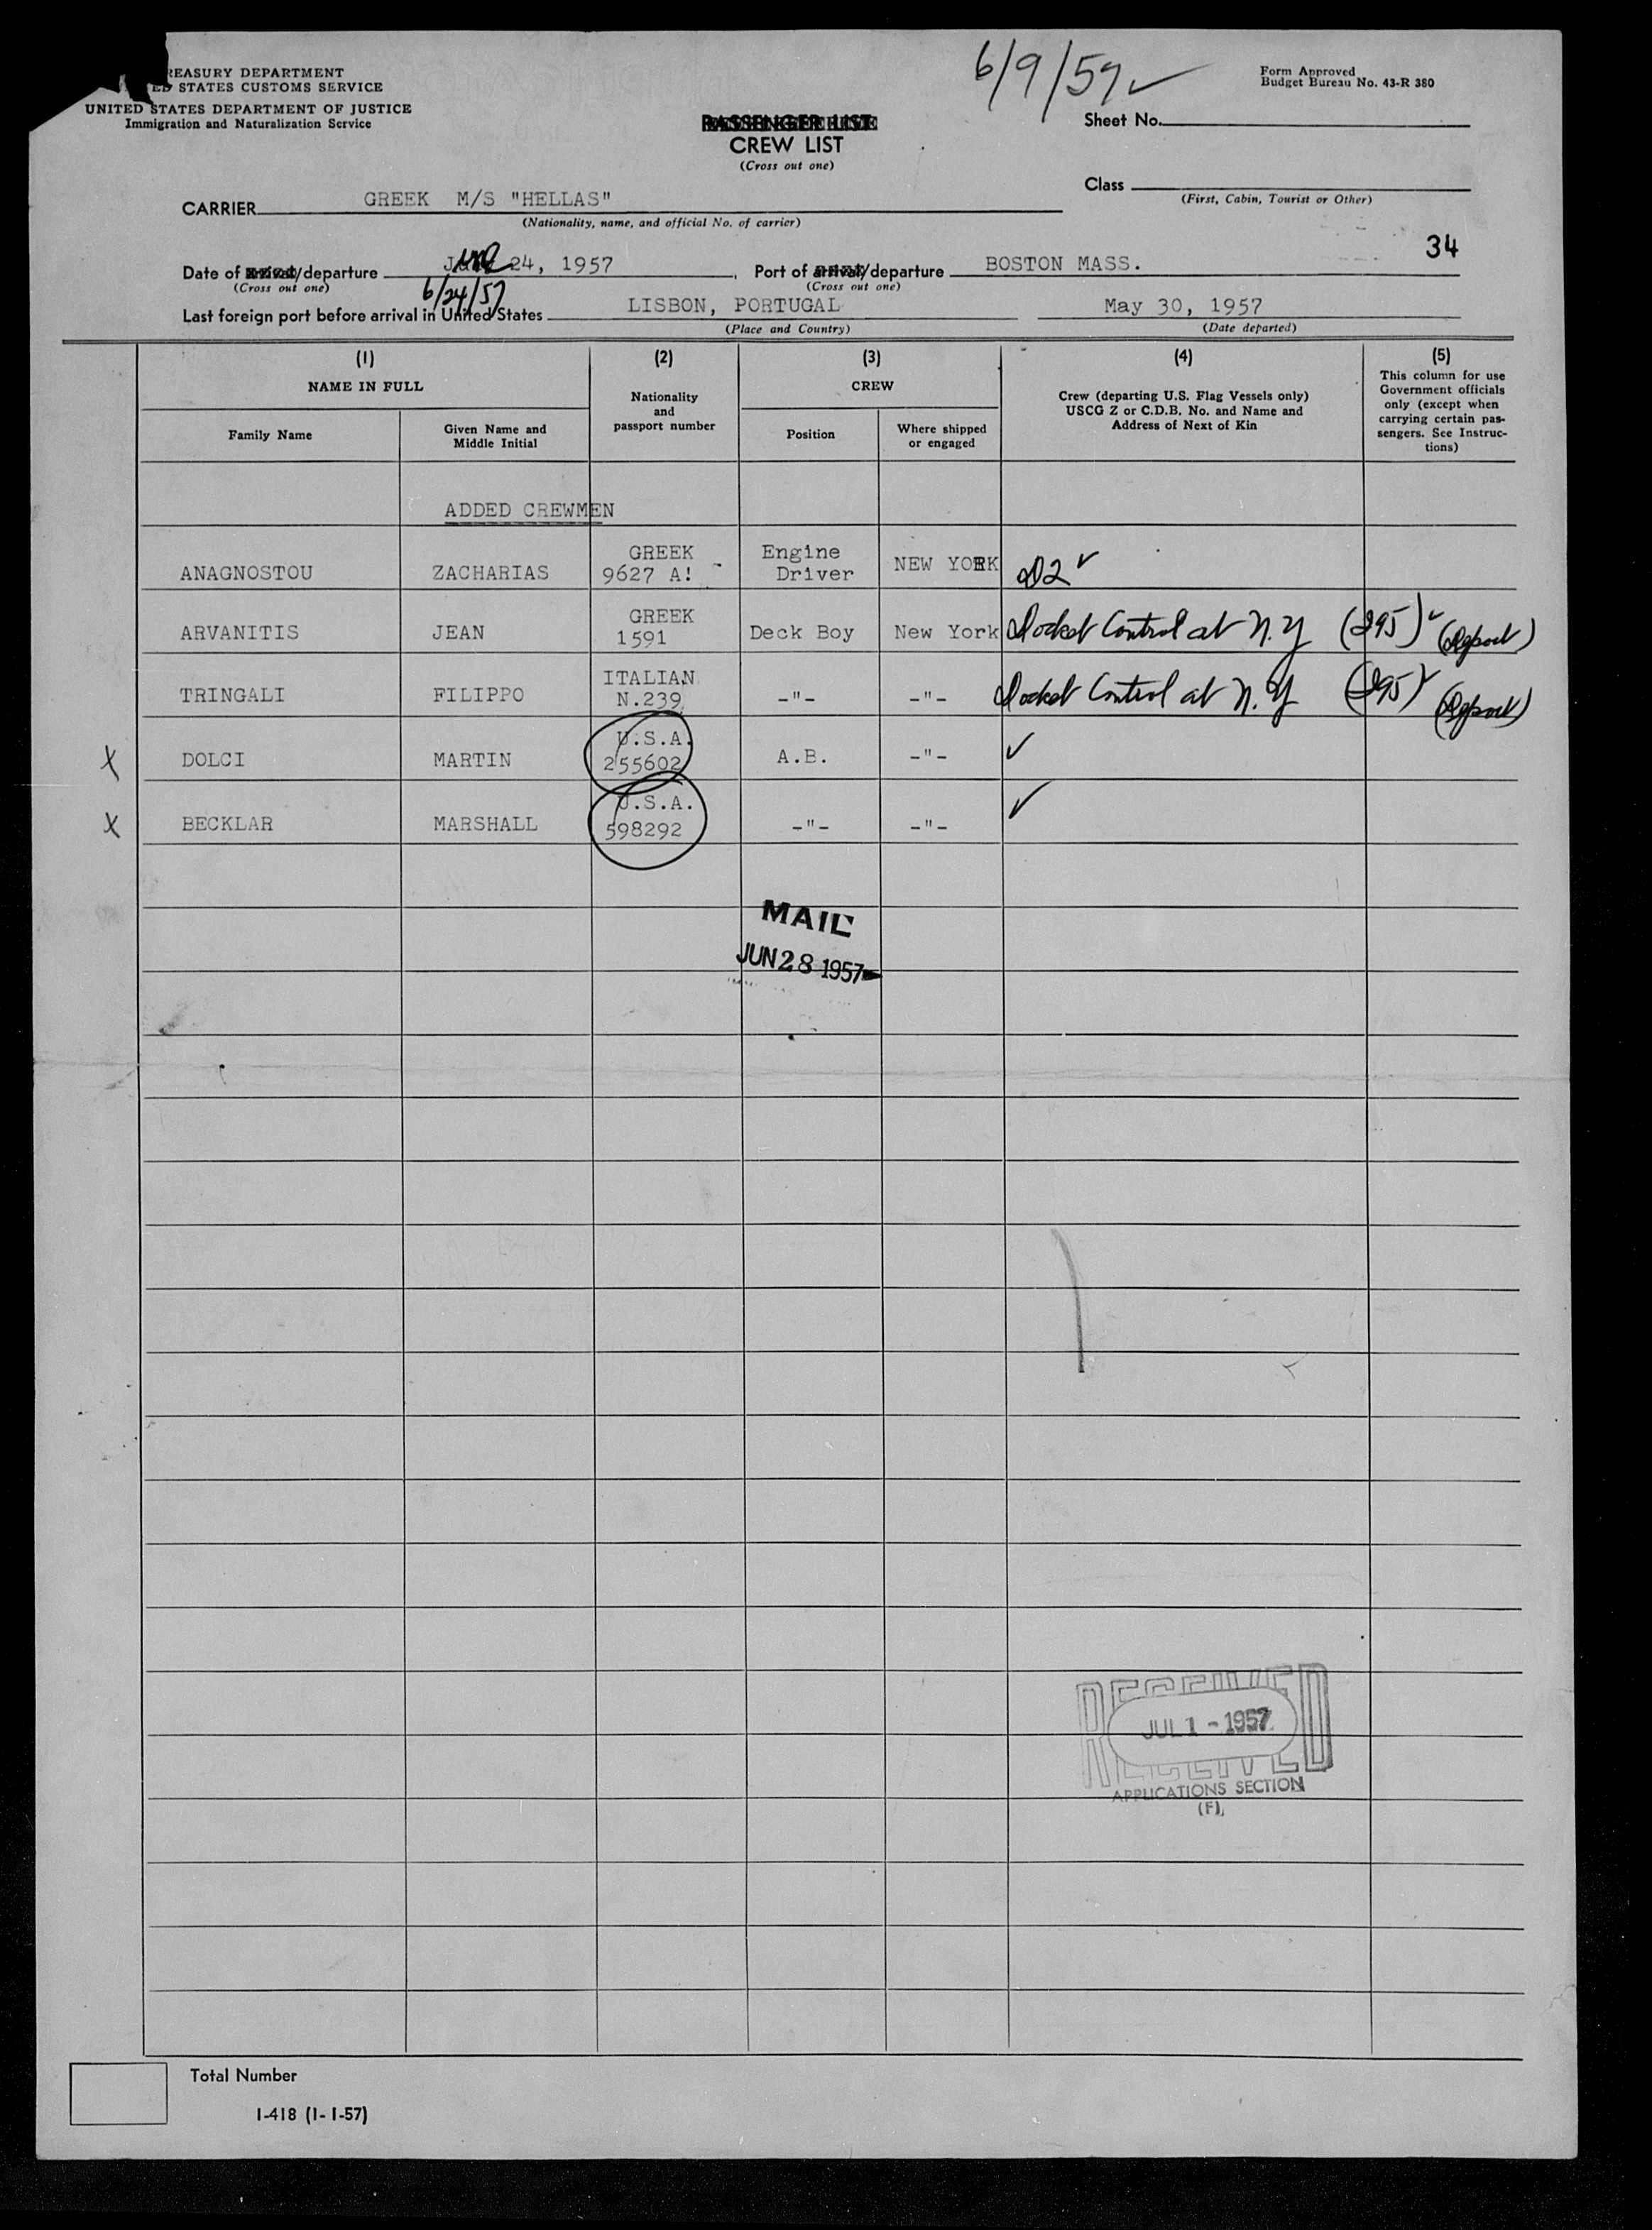 6/9/57 ✓
REASURY DEPARTMENT
ED STATES CUSTOMS SERVICE
UNITED STATES DEPARTMENT OF JUSTICE
Immigration and Naturalization Service
Form Approved
Budget Bureau No. 43-R 380
PASSENGER LIST
CREW LIST
(Cross out one)
Sheet No.
Class
(First, Cabin, Tourist or Other)
CARRIER GREEK M/S "HELLAS"
(Nationality, name, and official No. of carrier)
34
Date of arrival/departure June 24, 1957, Port of arrival/departure BOSTON MASS.
(Cross out one) (Cross out one)
6/24/57
Last foreign port before arrival in United States LISBON, PORTUGAL May 30, 1957
(Place and Country) (Date departed)
(1) (2) (3) (4) (5)
NAME IN FULL
Family Name
Given Name and
Middle Initial
Nationality
and
passport number
CREW
Position
Where shipped
or engaged
Crew (departing U.S. Flag Vessels only)
USCG Z or C.D.B. No. and Name and
Address of Next of Kin
This column for use
Government officials
only (except when
carrying certain pas-
sengers. See Instruc-
tions)
ADDED CREWMEN
GREEK Engine
ANAGNOSTOU ZACHARIAS 9627 A! Driver NEW YORK D2 ✓
GREEK
ARVANITIS JEAN 1591 Deck Boy New York Docket Control at N.Y (I95) ✓ (Deport)
ITALIAN
TRINGALI FILIPPO N.239 -"- -"- Docket Control at N.Y (I95) ✓ (Deport)
U.S.A.
X DOLCI MARTIN 255602 A.B. -"- ✓
U.S.A.
X BECKLAR MARSHALL 598292 -"- -"- ✓
MAIL
JUN 28 1957
RECEIVED
JUL 1 - 1957
RECEIVED
APPLICATIONS SECTION
(F)
Total Number
I-418 (1-1-57)